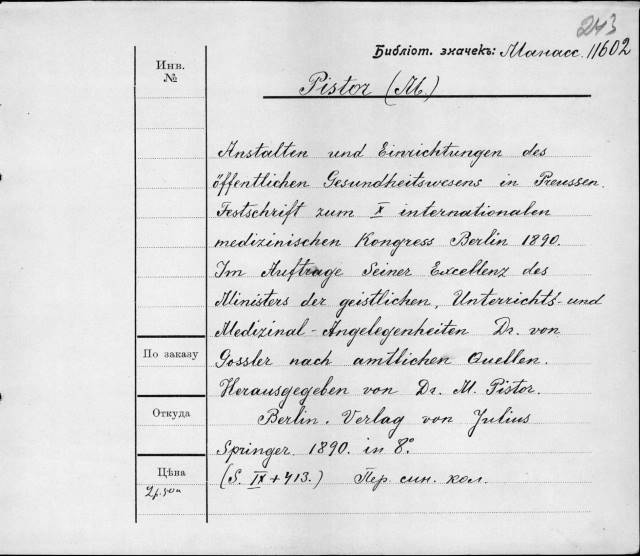 243
Библіот. значекъ: Манасс. 11602
Инв.
№
Pistor (M.)
Anstalten und Einrichtungen des
öffentlichen Gesundheitswesens in Preussen.
Festschrift zum X internationalen
medizinischen Kongress Berlin 1890.
Im Auftrage Seiner Excellenz des
Ministers der geistlichen, Unterrichts- und
Medizinal-Angelegenheiten Dr. von
По заказу
Gossler nach amtlichen Quellen.
Herausgegeben von Dr. M. Pistor.
Откуда
Berlin. Verlag von Julius
Springer. 1890. in 8°.
Цѣна
(S. IX + 413.) Пер. син. кол.